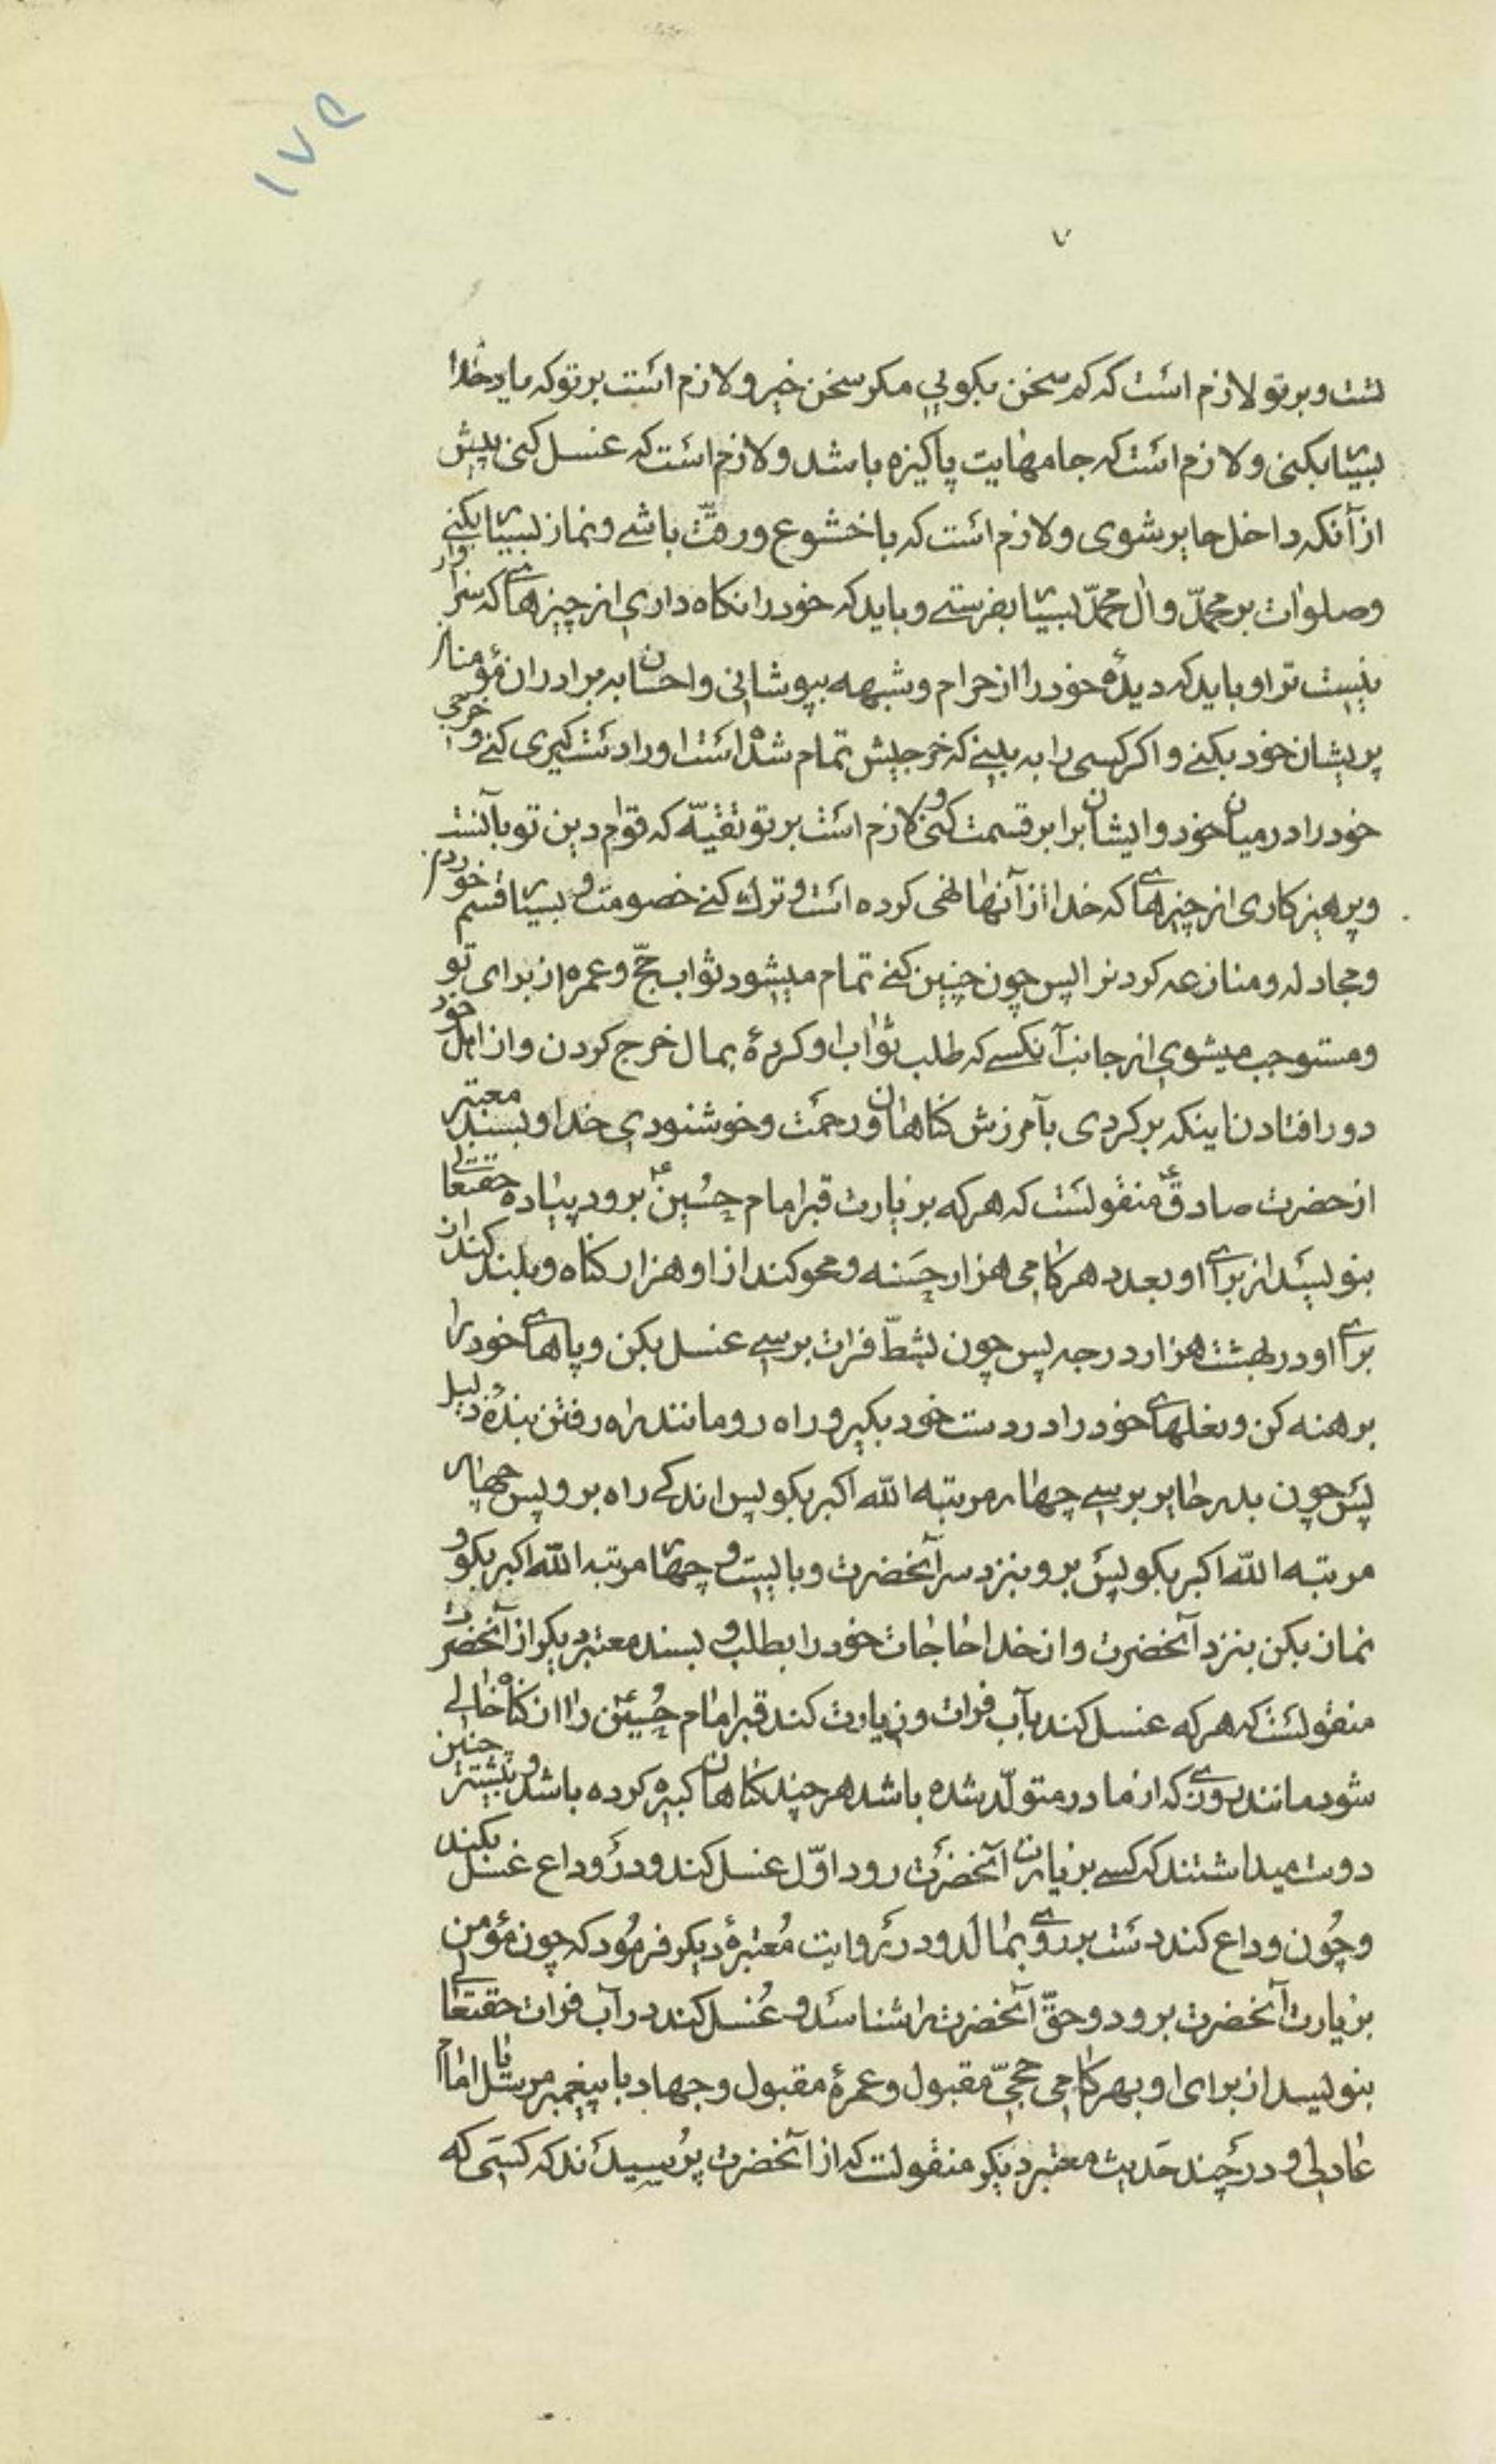 ۱۷۵
۷
تست و بر تو لازم است که کم سخن بکویی مکر سخن خیر و لازم است بر تو که یاد خدا
بسیار بکنی و لازم است که جامهایت پاکیزه باشد و لازم است که غسل کنی پیش
از آنکه داخل حایر شوی و لازم است که با خشوع و رقّت باشی و نماز بسیار بکنی
و صلوات بر محمّد و ال محمّد بسیار بفرستی و باید که خود را نکاه داری از چیزهای که سزاوار
نیست ترا و باید که دیدهٔ خود را از حرام و شبهه بپوشانی و احسان به برادران مؤمن
پریشان خود بکنی و اکر کسی را به بینی که خرجیش تمام شده است او را دستکیری کنی و خرجی
خود را در میان خود و ایشان برابر قسمت کنی و لازم است بر تو تقیّه که قوام دین تو بآنست
و پرهیزکاری از چیزهای که خدا از آنها نهی کرده است و ترک کنی خصومت و بسیار قسم خوردن
و مجادله و منازعه کردن را پس چون چنین کنی تمام میشود ثواب حجّ و عمره از برای تو
و مستوجب میشوی از جانب آنکسی که طلب ثواب او کردهٔ بمال خرج کردن و از اهل خود
دور افتادن اینکه برکردی بآمرزش کناهان و رحمت و خوشنودی خدا و بسند معتبر
از حضرت صادقؑ منقولست که هر که بزیارت قبر امام حسینؑ برود پیاده حقتعالی
بنویسد از برای او بعدد هر کامی هزار حسنه و محو کند از او هزار کناه و بلند کند از
برای او در بهشت هزار درجه پس چون بشطّ فرات برسی غسل بکن و پاهای خود را
برهنه کن و نعلهای خود را در دست خود بکیر و راه رو مانند راه رفتن بندهٔ ذلیل
پس چون بدر حایر برسی چهار مرتبه الله اکبر بکو پس اندکی راه برو پس چهار
مرتبه الله اکبر بکو پس برو بنزد سر آنحضرت و بایست و چهار مرتبه الله اکبر بکو و
نماز بکن بنزد آنحضرت و از خدا حاجات خود را بطلب و بسند معتبر دیکر از آنحضرت
منقولست که هر که غسل کند بآب فرات و زیارت کند قبر امام حسینؑ را از کناه خالی
شود مانند روزی که از مادر متولّد شده باشد هر چند کناهان کبیره کرده باشد و
دوست میداشتند که کسی بزیارت آنحضرت رود اوّل غسل کند و در وداع غسل نکند
و چون وداع کند دست بر روی بمالد و در روایت معتبرهٔ دیکر فرمود که چون مؤمن
بزیارت آنحضرت برود و حقّ آنحضرت را شناسد و غسل کند در آب فرات حقتعالی
بنویسد از برای او بهر کامی حجّی مقبول و عمرهٔ مقبول و جهاد با پیغمبر مرسل یا امام
عادلی و در چند حدیث معتبر دیکر منقولست که از آنحضرت پرسیدند که کسی که